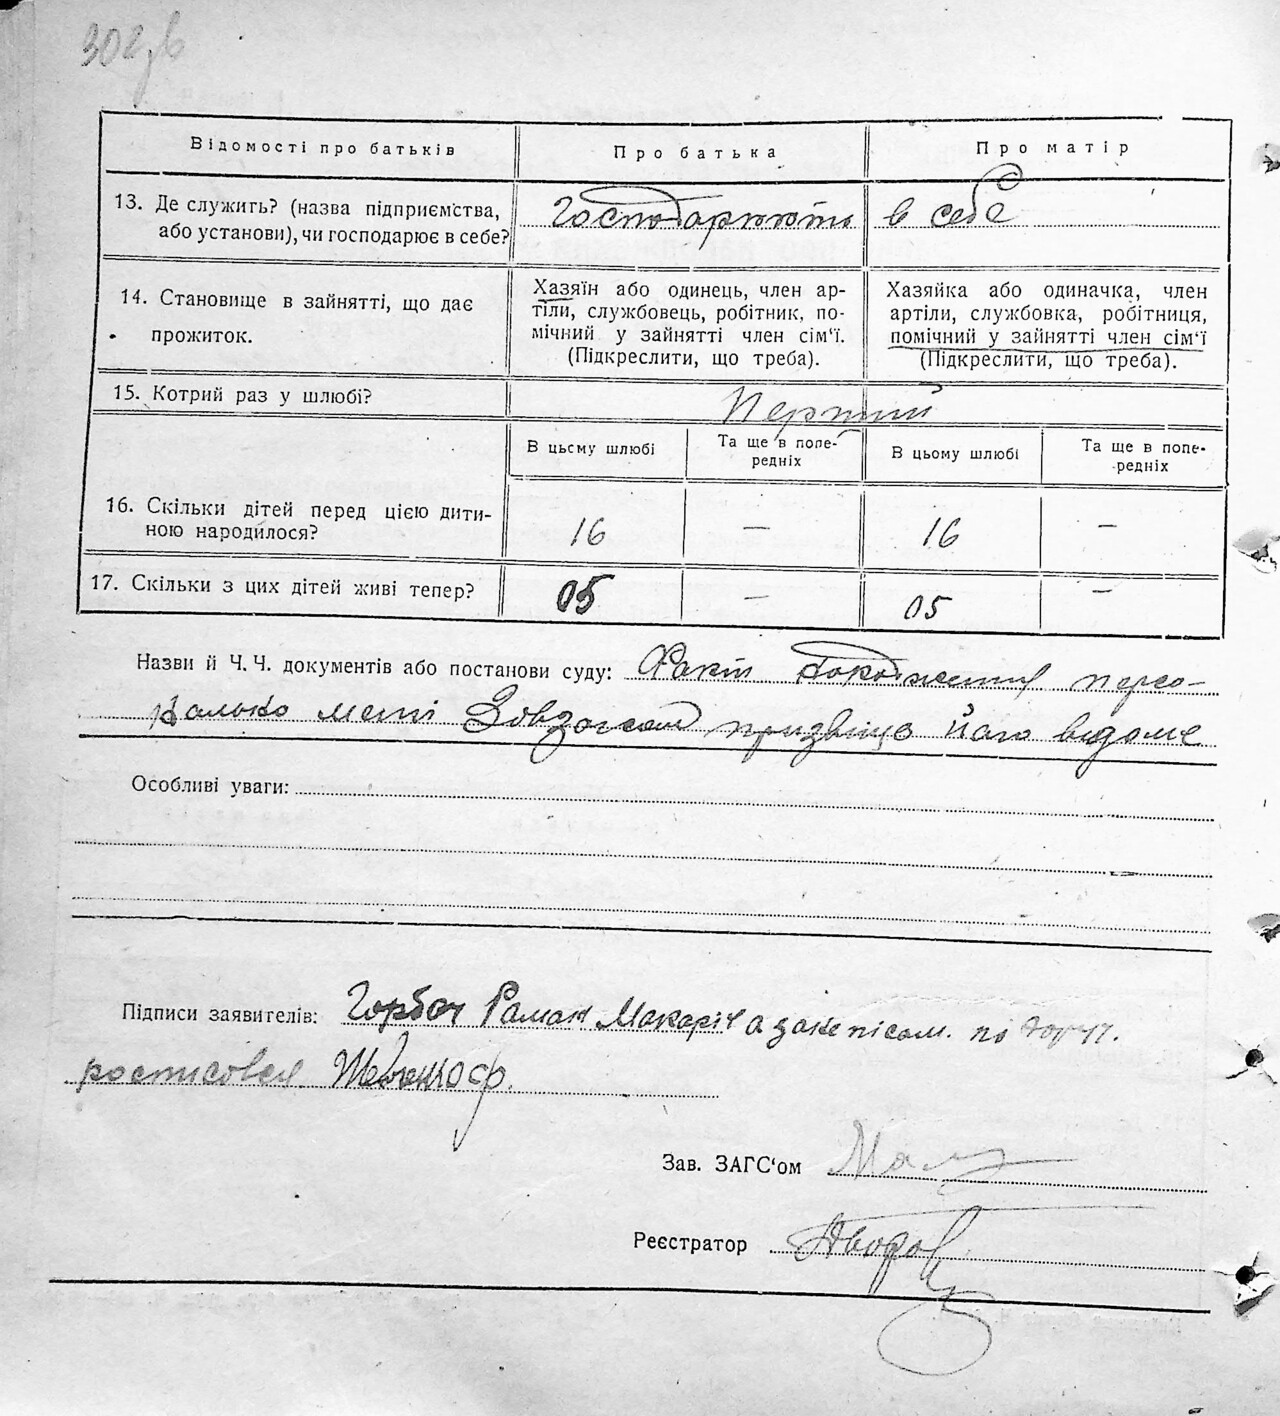 302зв
Відомості про батьків
Про батька
Про матір
13. Де служить? (назва підприємства,
або установи), чи господарює в себе?
Господарюють в себе
14. Становище в зайнятті, що дає
прожиток.
Хазяїн або одинець, член ар-
тіли, службовець, робітник, по-
мічний у зайнятті член сім'ї.
(Підкреслити, що треба).
Хазяйка або одиначка, член
артіли, службовка, робітниця,
помічний у зайнятті член сім'ї
(Підкреслити, що треба).
15. Котрий раз у шлюбі?
Перший
В цьому шлюбі
Та ще в попе-
редніх
В цьому шлюбі
Та ще в попе-
редніх
16. Скільки дітей перед цією дити-
ною народилося?
16 — 16 —
17. Скільки з цих дітей живі тепер?
05 — 05 —
Назви й Ч. Ч. документів або постанови суду: Факт персо-
нально мені призвіще його відоме
Особливі уваги:
Підписи заявителів: Горбач Раман Макаріч а за не пісм. по
росписовся
Зав. ЗАГС'ом
Реєстратор